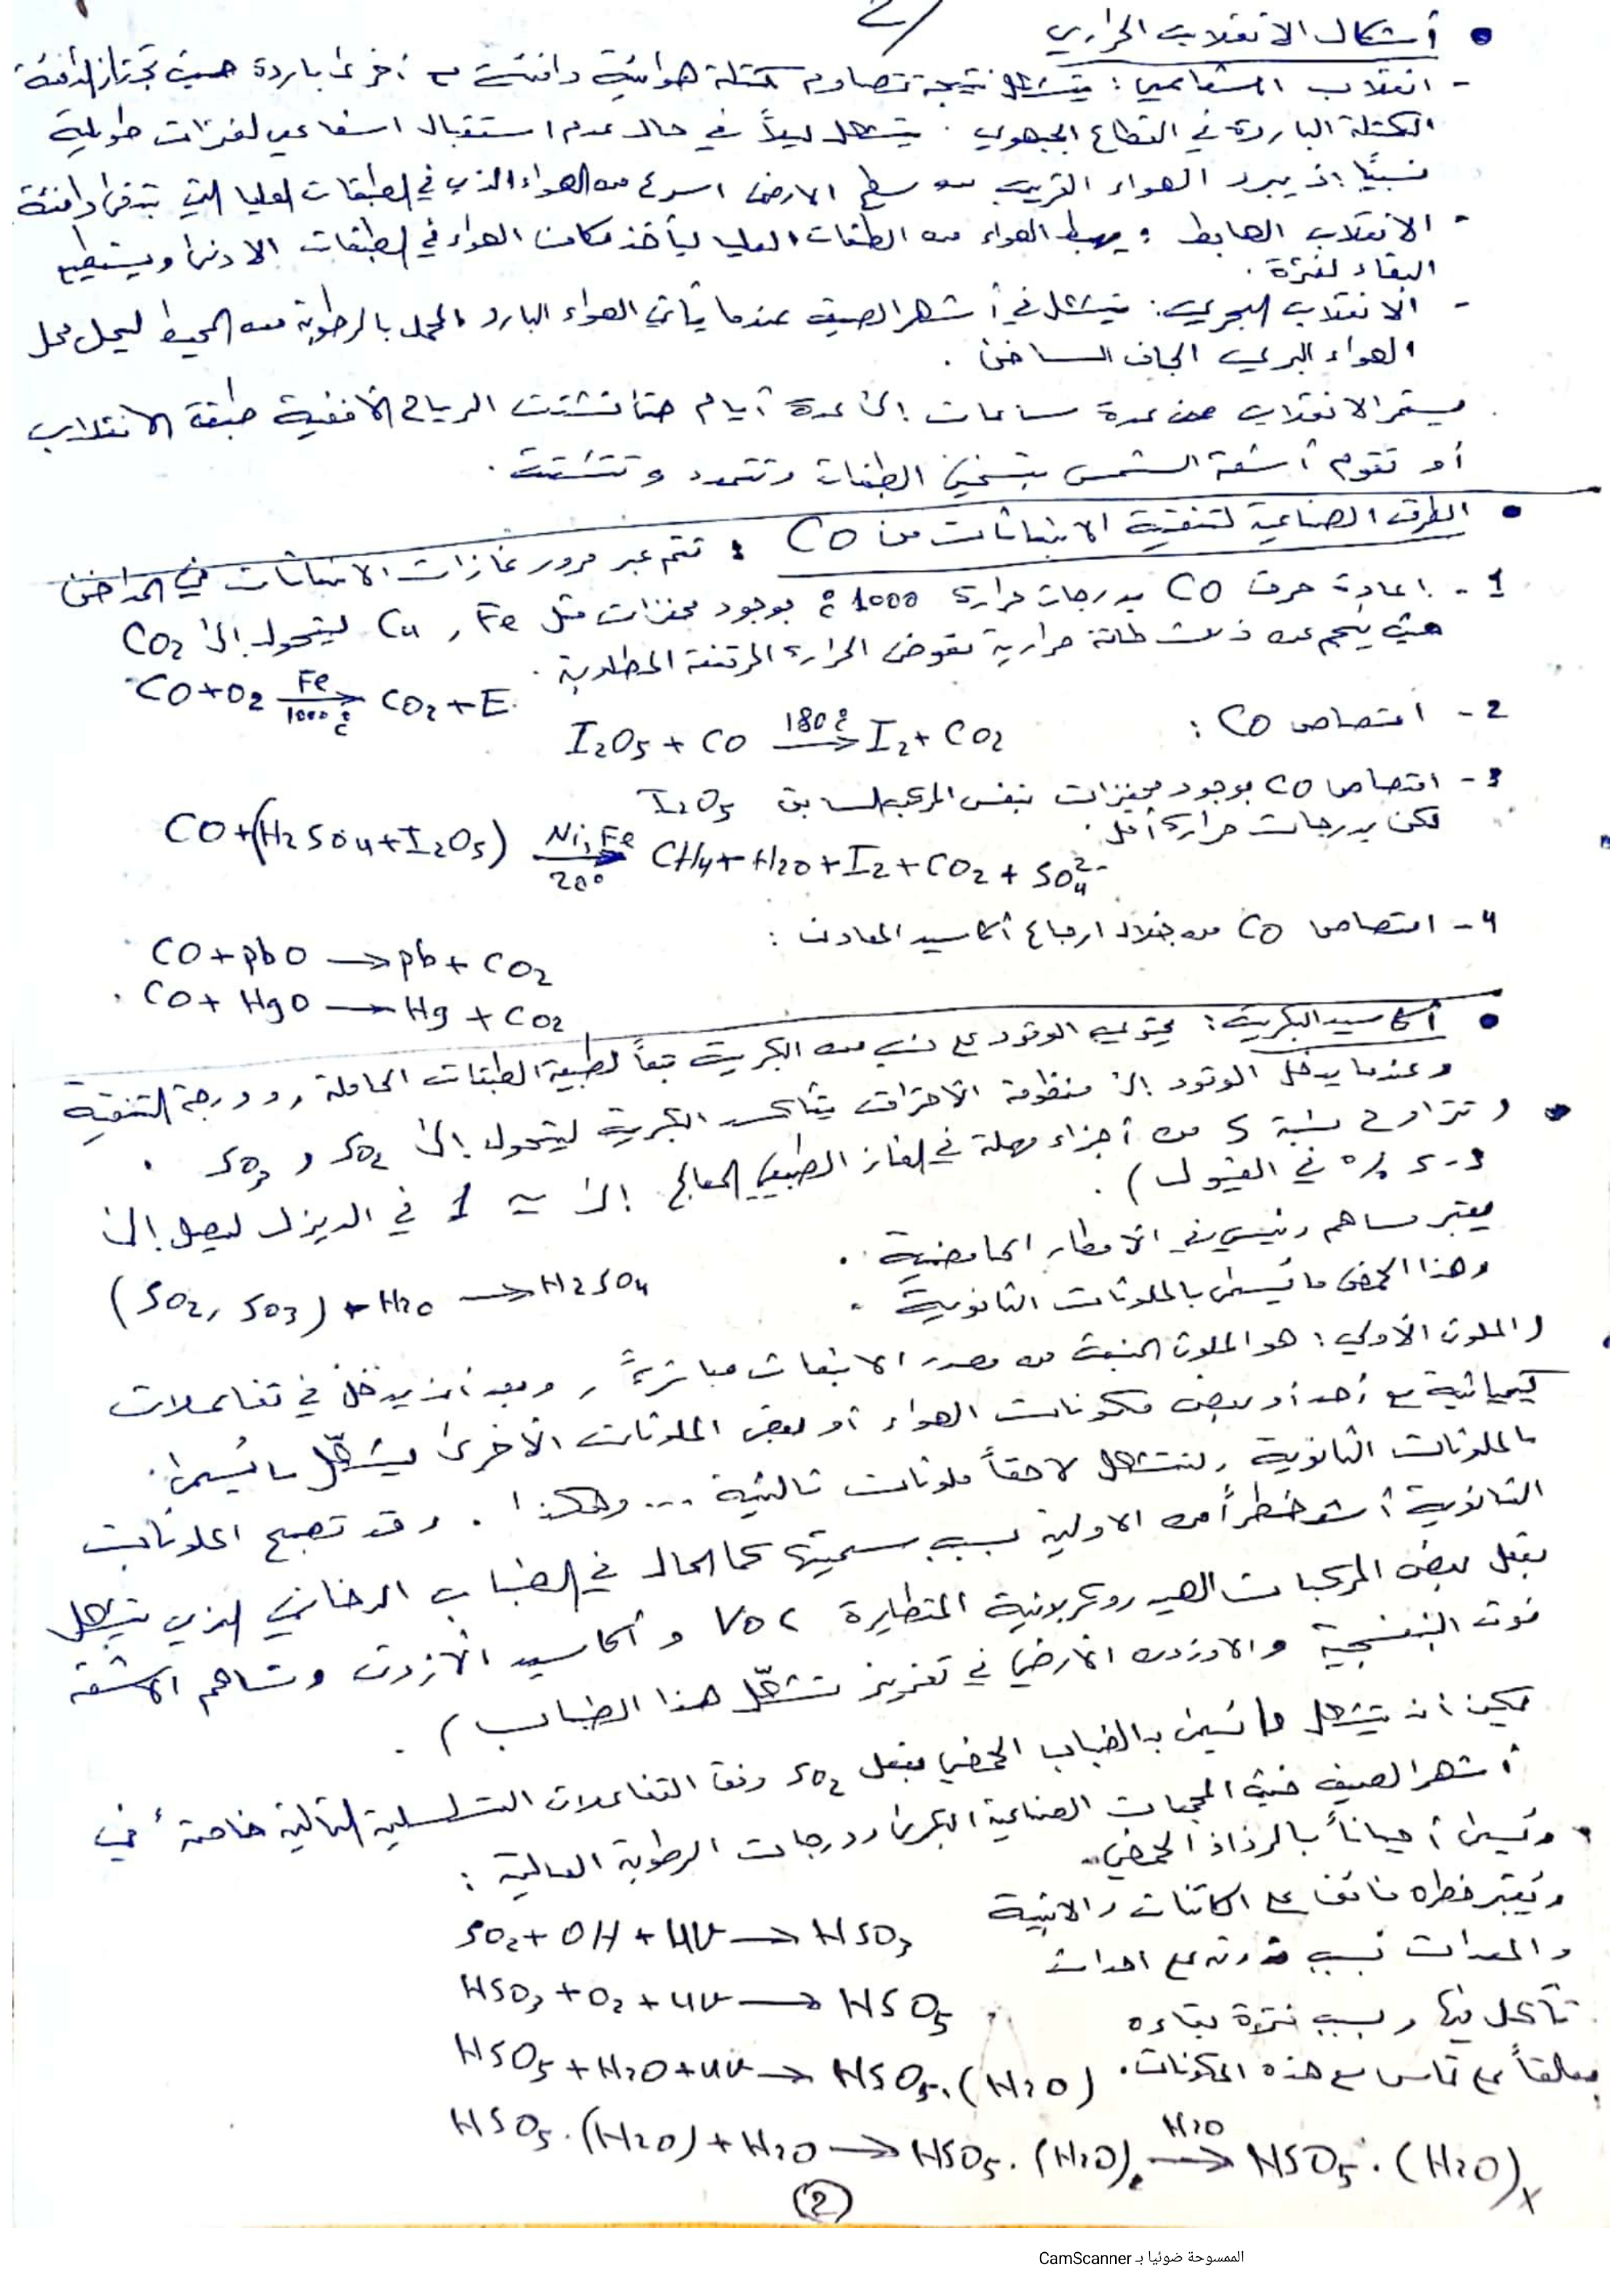 2/
• أشكال الانقلاب الحراري
- انقلاب اشعاعي : يتشكل نتيجة تصادم كتلة هوائية دافئة مع أخرى باردة حيث تجتاز الدافئة
الكتلة الباردة في القطاع الجبهوي . يتشكل ليلاً في حال عدم استقبال اشعاعي لفترات طويلة
نسبيًا إذ يبرد الهواء القريب من سطح الارض اسرع من الهواء الذي في الطبقات العليا التي تبقى دافئة
- الانقلاب الهابط : يهبط الهواء من الطبقات العليا ليأخذ مكان الهواء في الطبقات الادنى ويستطيع
البقاء لفترة .
- الانقلاب البحري : يتشكل في أشهر الصيف عندما يأتي الهواء البارد المحمل بالرطوبة من المحيط ليحل محل
الهواء البري الجاف الساخن .
. يستمر الانقلاب من عدة ساعات إلى عدة أيام حتى تشتت الرياح الأفقية طبقة الانقلاب
أو تقوم أشعة الشمس بتسخين الطبقات وتتمدد وتتشتت .
• الطرق الصناعية لتنقية الانبعاثات من CO : تتم عبر مرور غازات الانبعاثات في المداخن
1 - إعادة حرق CO بدرجات حرارة 1000 ْم بوجود محفزات مثل Fe , Cu ليتحول إلى CO2
حيث ينجم عن ذلك طاقة حرارية تعوض الحرارة المرتفعة المطلوبة .
CO+O2 —Fe/1000 ْم→ CO2+E.
2 - امتصاص CO : I2O5 + CO —180 ْم→ I2 + CO2
3 - امتصاص CO بوجود محفزات بنفس المركب السابق I2O5
لكن بدرجات حرارة أقل .
CO+(H2SO4+I2O5) —Ni,Fe/20°→ CH4+H2O+I2+CO2+SO4^2-
4 - امتصاص CO من خلال ارجاع أكاسيد المعادن :
CO+PbO → Pb+CO2
CO+HgO → Hg+CO2
• أكاسيد الكبريت : يحتوي الوقود على نسب من الكبريت تبعاً لطبيعة الطبقات الحاملة , ودرجة التنقية
وعندما يدخل الوقود إلى منظومة الاحتراق يتأكسد الكبريت ليتحول إلى SO2 و SO3 .
• وتتراوح نسبة S من أجزاء مهملة في الغاز الطبيعي المعالج إلى ≈ 1 في الديزل ليصل إلى
3-5 % في الفيول ) .
يعتبر مساهم رئيسي في الأمطار الحامضية .
(SO2, SO3) + H2O → H2SO4
وهذا الحمض ما يُسمى بالملوثات الثانوية .
( الملوث الأولي : هو الملوث المنبعث من مصدر الانبعاث مباشرةً , وبعد أن يدخل في تفاعلات
كيميائية مع أحد أو بعض مكونات الهواء أو بعض الملوثات الأخرى يشكّل ما يُسمى
بالملوثات الثانوية , لتتشكل لاحقاً ملوثات ثالثية ... وهكذا . وقد تصبح الملوثات
الثانوية أشد خطراً من الاولية بسبب سميتها كما الحال في الضباب الدخاني الذي يتشكل
بفعل بعض المركبات الهيدروكربونية المتطايرة VOC و أكاسيد الأزوت وتساهم الأشعة
فوق البنفسجية والاوزون الأرضي في تعزيز تشكّل هذا الضباب ) .
يمكن أن يتشكل ما يُسمى بالضباب الحمضي بفعل SO2 وفق التفاعلات التسلسلية التالية خاصة في
أشهر الصيف حيث المجمعات الصناعية الكبرى ودرجات الرطوبة العالية :
• ويُسمى أحياناً بالرذاذ الحمضي
ويُعتبر خطره فائق على الكائنات والابنية
والمعدات بسبب قدرته على احداث
تآكل فيها وبسبب فترة بقاءه
معلقاً على تماس مع هذه المكونات .
SO2+OH+UV → HSO3
HSO3+O2+UV → HSO5
HSO5+H2O+UV → HSO5.(H2O)
HSO5.(H2O)+H2O → HSO5.(H2O)2 —H2O→ HSO5.(H2O)x
2
الممسوحة ضوئيا بـ CamScanner